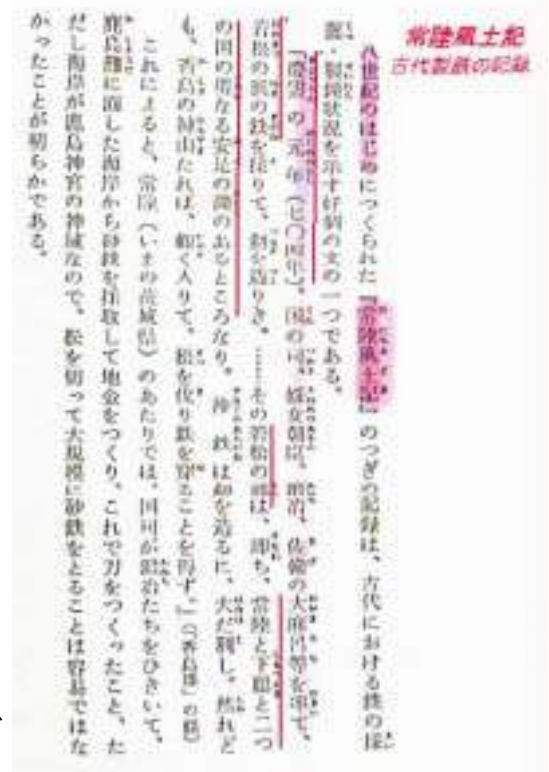 常陸風土記
古代製鉄の記録
八世紀のはじめにつくられた『常陸風土記』のつぎの記録は、古代における鉄の採
掘・製錬状況を示す好個の文の一つである。
「慶雲の元年(七〇四年)、国の司、婇女朝臣、鍛冶、佐備の大麻呂等を率て、
若松の浜の鉄を採りて、剣を造りき。……その若松の浦は、即ち、常陸と下総と二つ
の国の堺なる安是の湖のあるところなり。沙鉄は剣を造るに、大だ利し。然れど
も、香島の神山たれば、輙く入りて、松を伐り鉄を穿ることを得ず。」(「香島郡」の条)
これによると、常陸(いまの茨城県)のあたりでは、国司が鍛冶たちをひきいて、
鹿島灘に面した海岸から砂鉄を採取して地金をつくり、これで刀をつくったこと、た
だし海岸が鹿島神宮の神域なので、松を切って大規模に砂鉄をとることは容易ではな
かったことが明らかである。